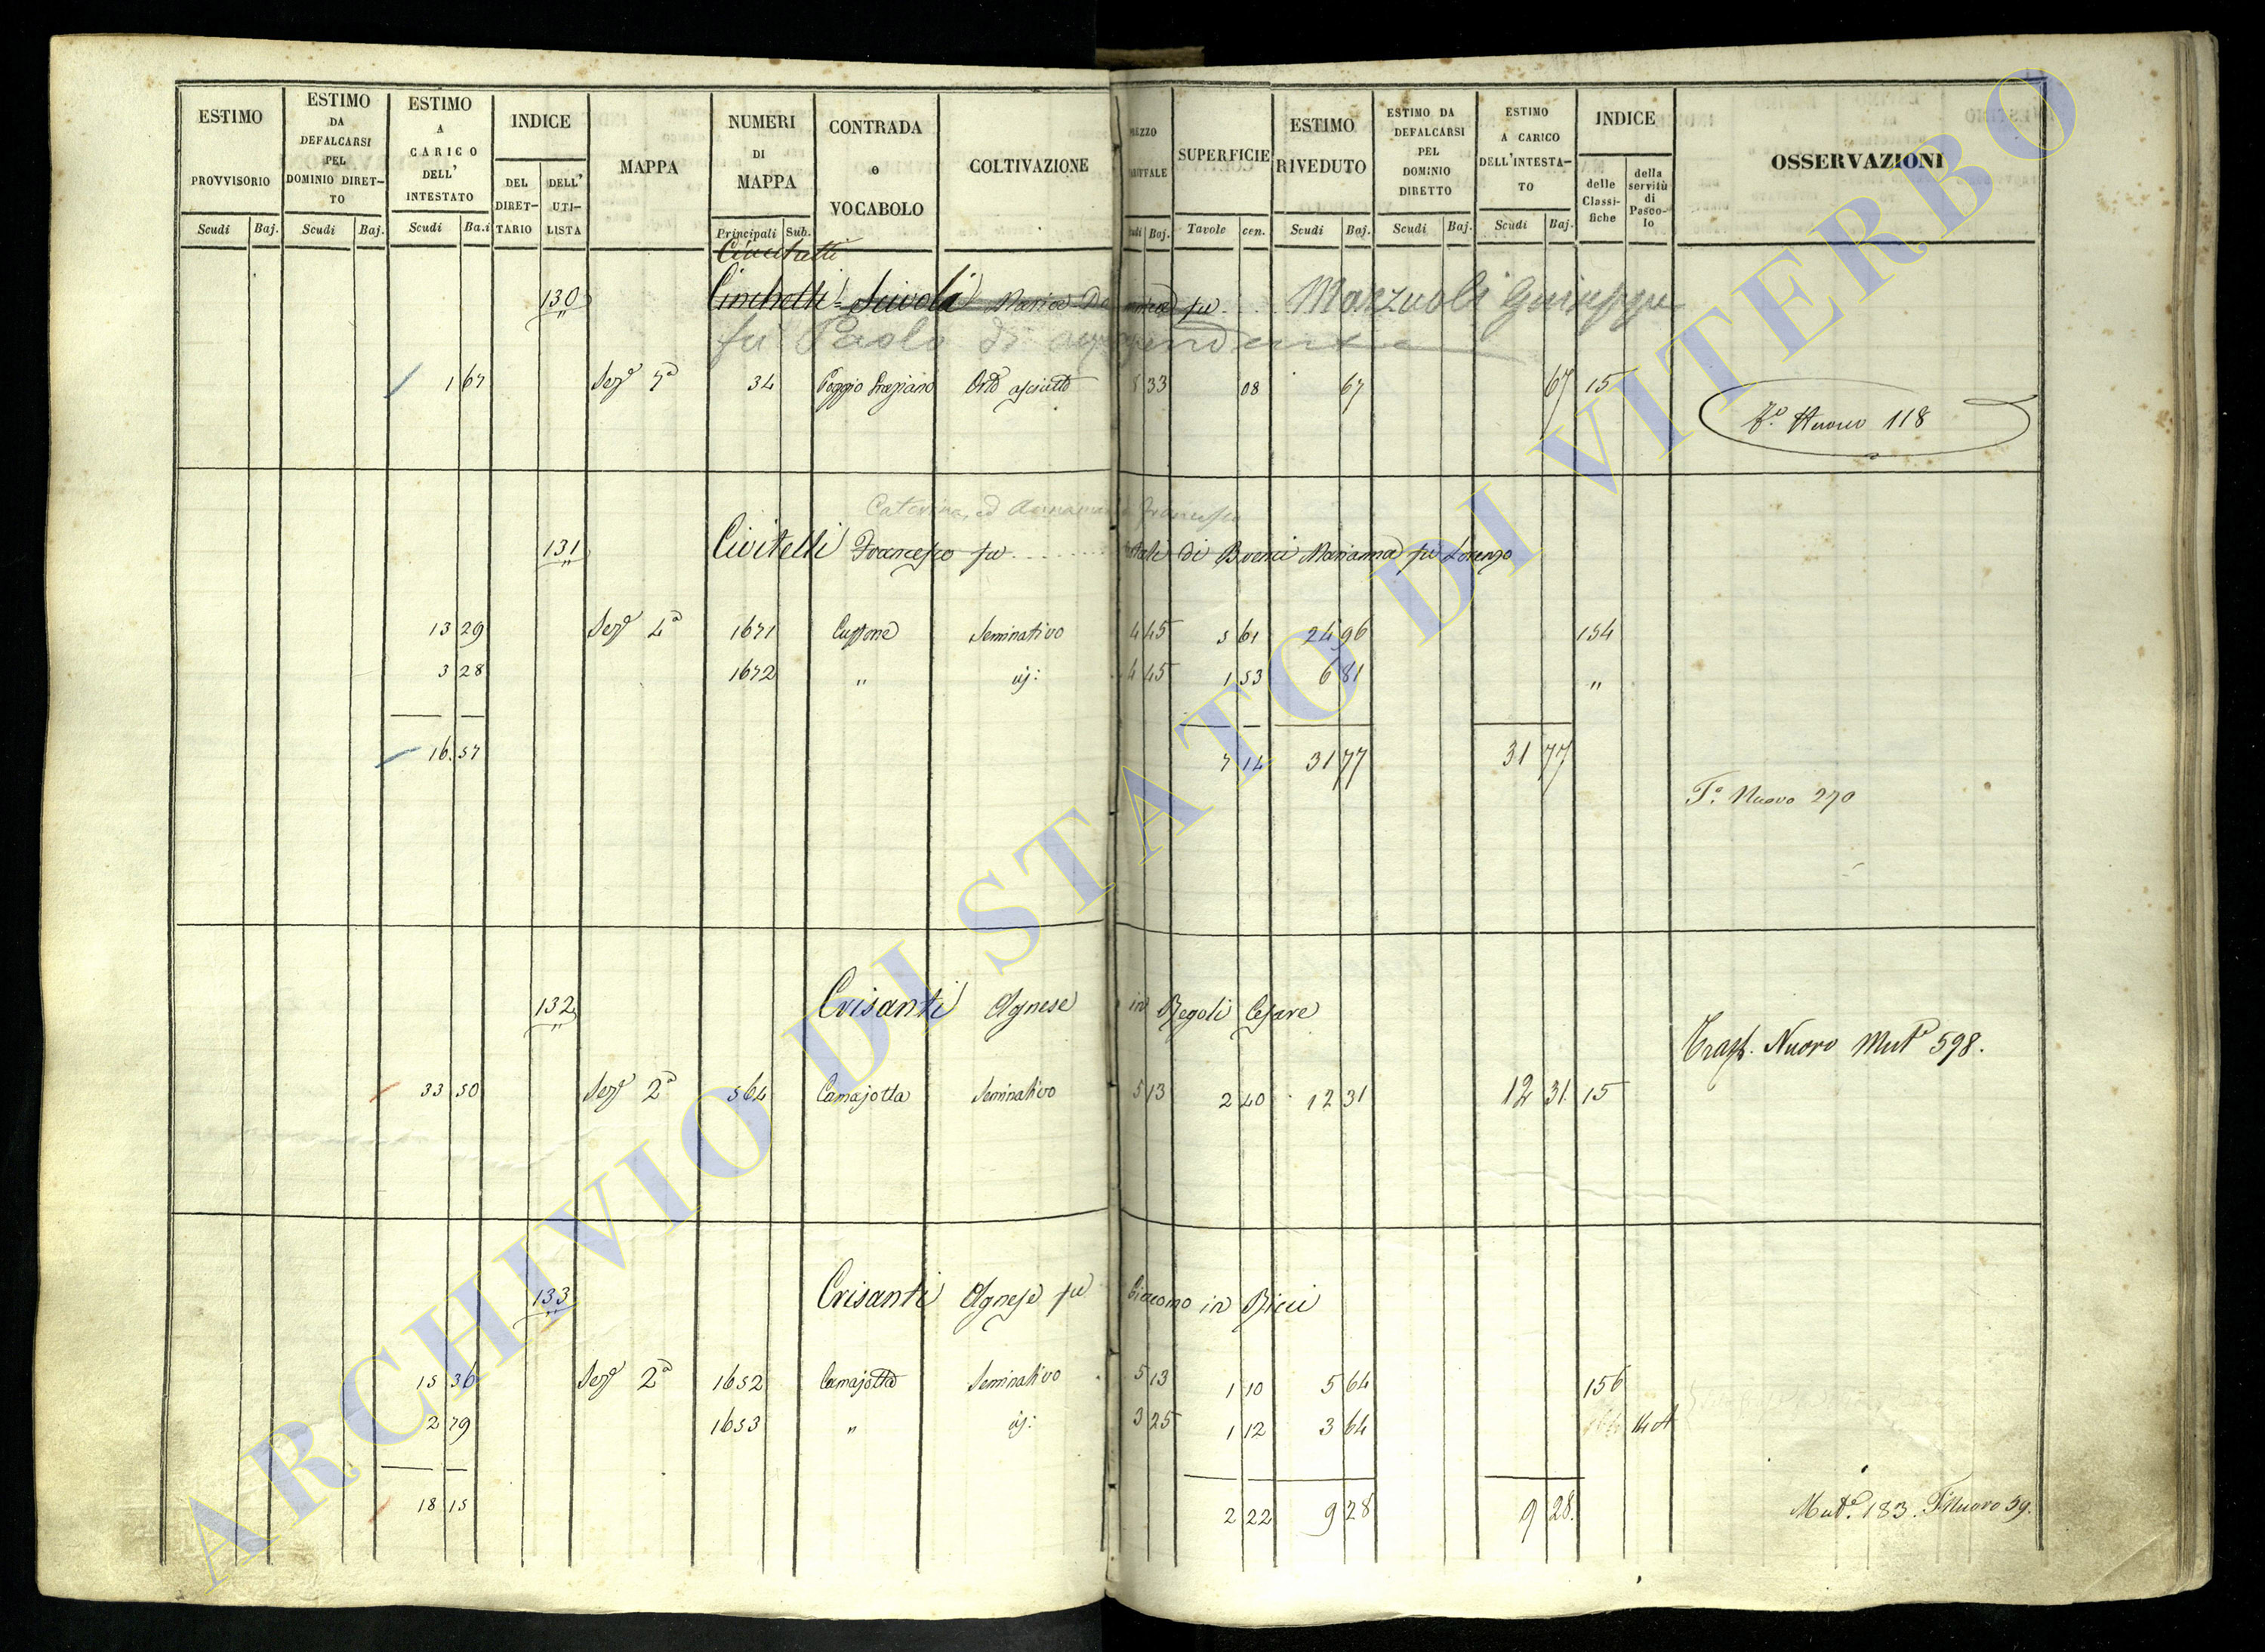 ESTIMO PROVVISORIO
Scudi Baj.
ESTIMO DA DEFALCARSI PEL DOMINIO DIRET-TO
Scudi Baj.
ESTIMO A CARICO DELL' INTESTATO
Scudi Ba.i
INDICE
DEL DIRET-TARIO
DELL' UTI-LISTA
MAPPA
NUMERI DI MAPPA
Principali Sub.
CONTRADA o VOCABOLO
COLTIVAZIONE
Baj.
SUPERFICIE
Tavole cen.
ESTIMO RIVEDUTO
Scudi Baj.
ESTIMO DA DEFALCARSI PEL DOMINIO DIRETTO
Scudi Baj.
ESTIMO A CARICO DELL'INTESTA-TO
Scudi Baj.
INDICE
delle Classi-fiche
della servitù di Pasco-lo
OSSERVAZIONI
130 Scivoli Maria fu Marzuoli Giuseppe
fu Paolo di
1 67 Sez.e 5a 34 Poggio Graziano Orto asciutto 8 33 08 67 67 15
F.o Nuovo 118
Caterina, ed Annamaria Francesco
131 Civitelli Francesco fu di Bucci Marianna fu Lorenzo
13 29 Sez.e 4a 1671 Cuppone Seminativo 4 45 5 61 24 96 154
3 28 1672 " id: 4 45 1 53 6 81 "
16 57 7 14 31 77 31 77
F.o Nuovo 270
132 Crisanti Agnese in Regoli Cesare
Trasp. Nuovo Mut.a 598.
33 50 Sez.e 2a 564 Camajotta Seminativo 5 13 2 40 12 31 12 31 15
133 Crisanti Agnese fu Giacomo in Ricci
15 36 Sez.e 2a 1652 Camajotta Seminativo 5 13 1 10 5 64 156
2 79 1653 " id: 3 25 1 12 3 64 14 A
18 15 2 22 9 28 9 28.
Mut.a 183. F. Nuovo 59.
ARCHIVIO DI STATO DI VITERBO